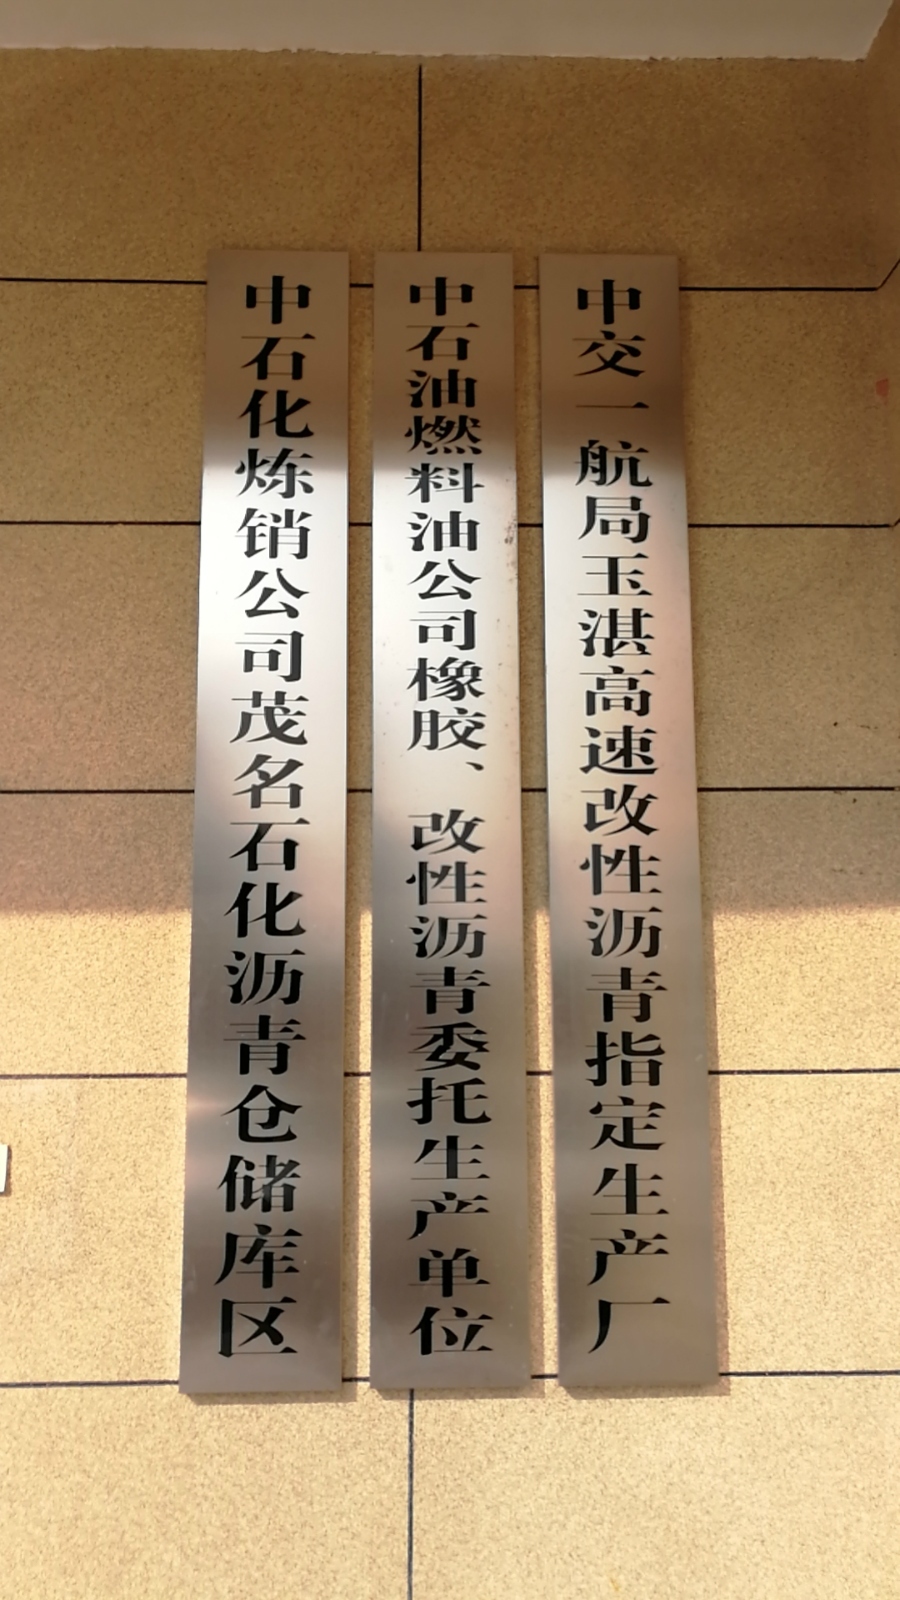 中石化炼销公司茂名石化沥青仓储库区
中石油燃料油公司橡胶、改性沥青委托生产单位
中交一航局玉湛高速改性沥青指定生产厂